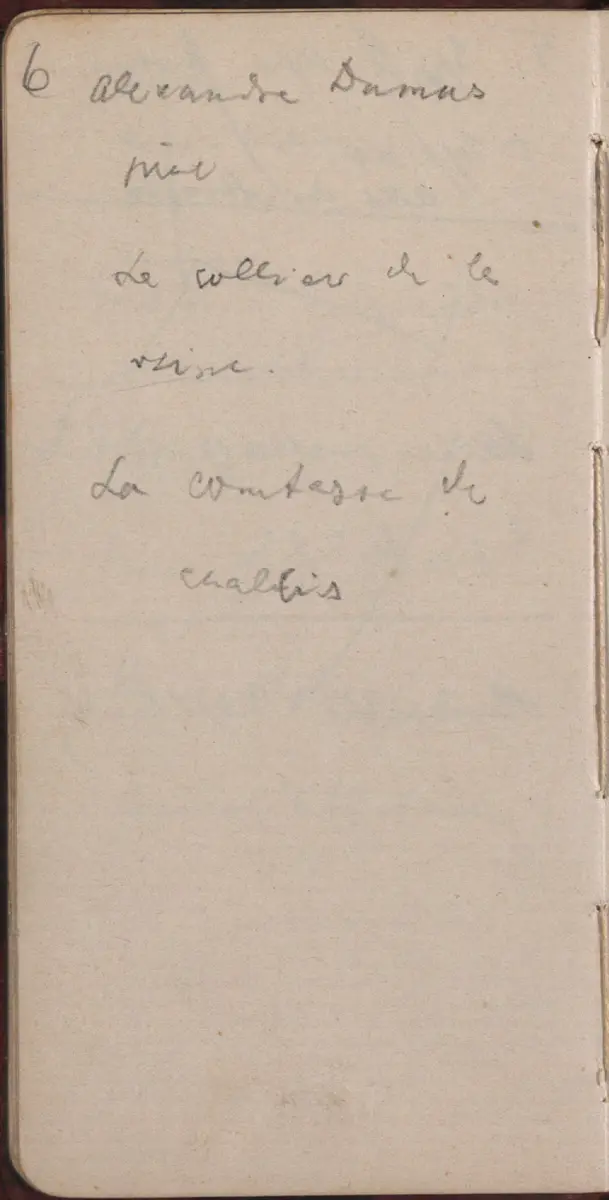 6 Alexandre Dumas
père
Le collier de la
reine.
La comtesse de
chalis